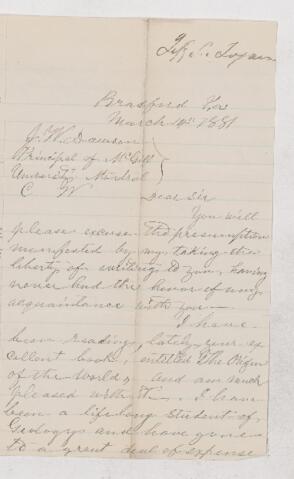 Bradford
March 14th 1881
J. W. Dawson
Principal of McGill
University Montreal
C W
Dear Sir
You will
please excuse the presumption
manifested by my taking the
liberty of writing to you, having
never had the honor of any
acquaintance with you—
I have
been reading, lately, your ex
cellent book, entitled "The Origin
of the World, and am much
pleased with it. I have
been a life long student of
Geology and have gone
to a great deal of expense